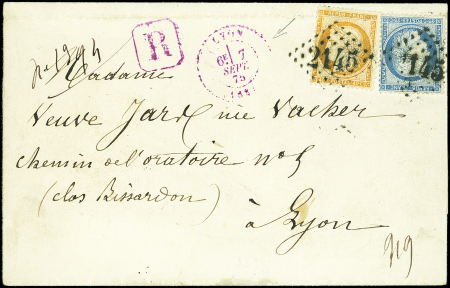 LYON
R
6E 7
SEPT.
75
REPUB. FRANC.
2145
2145
Madame
Veuve Jard née Vacher
chemin de l'oratoire no 5
(clos Bissardon)
à Lyon
919